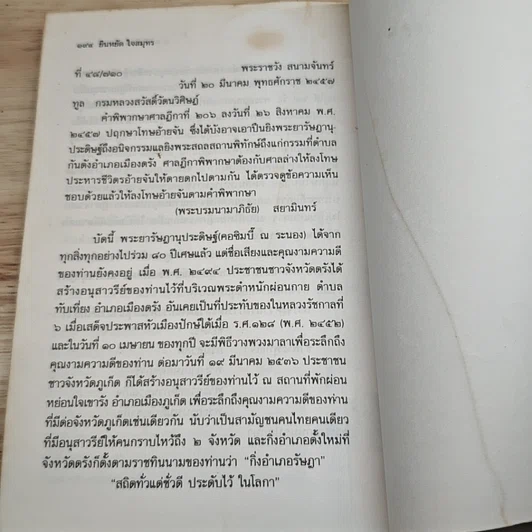 ๑๙๔ ยืนหยัด ใจสมุทร
ที่ ๔๘/๗๑๐ พระราชวัง สนามจันทร์
วันที่ ๒๐ มีนาคม พุทธศักราช ๒๔๕๗
ทูล กรมหลวงสวัสดิ์วัดนวิศิษฎ์
คำพิพากษาศาลฎีกาที่ ๒๐๖ ลงวันที่ ๒๖ สิงหาคม พ.ศ.
๒๔๕๗ ปฤกษาโทษอ้ายจัน ซึ่งได้บังอาจเอาปืนยิงพระยารัษฎานุ-
ประดิษฐ์ถึงอนิจกรรมแลยิงพระสถลสถานพิทักษ์ถึงแก่กรรมที่ตำบล
กันตังอำเภอเมืองตรัง ศาลฎีกาพิพากษาต้องกับศาลล่างให้ลงโทษ
ประหารชีวิตรอ้ายจันให้ตายตกไปตามกัน ได้ตรวจดูข้อความเห็น
ชอบด้วยแล้วให้ลงโทษอ้ายจันตามคำพิพากษา
(พระบรมนามาภิธัย) สยามินทร์
บัดนี้ พระยารัษฎานุประดิษฐ์(คอซิมบี้ ณ ระนอง) ได้จาก
ทุกสิ่งทุกอย่างไปร่วม ๘๐ ปีเศษแล้ว แต่ชื่อเสียงและคุณงามความดี
ของท่านยังคงอยู่ เมื่อ พ.ศ. ๒๔๙๔ ประชาชนชาวจังหวัดตรังได้
สร้างอนุสาวรีย์ของท่านไว้ที่บริเวณพระตำหนักผ่อนกาย ตำบล
ทับเที่ยง อำเภอเมืองตรัง อันเคยเป็นที่ประทับของในหลวงรัชกาลที่
๖ เมื่อเสด็จประพาสหัวเมืองปักษ์ใต้เมื่อ ร.ศ.๑๒๘ (พ.ศ. ๒๔๕๒)
และในวันที่ ๑๐ เมษายน ของทุกปี จะมีพิธีวางพวงมาลาเพื่อระลึกถึง
คุณงามความดีของท่าน ต่อมาวันที่ ๑๙ มีนาคม ๒๕๓๖ ประชาชน
ชาวจังหวัดภูเก็ต ก็ได้สร้างอนุสาวรีย์ของท่านไว้ ณ สถานที่พักผ่อน
หย่อนใจเขารัง อำเภอเมืองภูเก็ต เพื่อระลึกถึงคุณงามความดีของท่าน
ที่มีต่อจังหวัดภูเก็ตเช่นเดียวกัน นับว่าเป็นสามัญชนคนไทยคนเดียว
ที่มีอนุสาวรีย์ให้คนกราบไหว้ถึง ๒ จังหวัด และกิ่งอำเภอตั้งใหม่ที่
จังหวัดตรังก็ตั้งตามราชทินนามของท่านว่า “กิ่งอำเภอรัษฎา”
“สถิตทั่วแต่ชั่วดี ประดับไว้ ในโลกา”